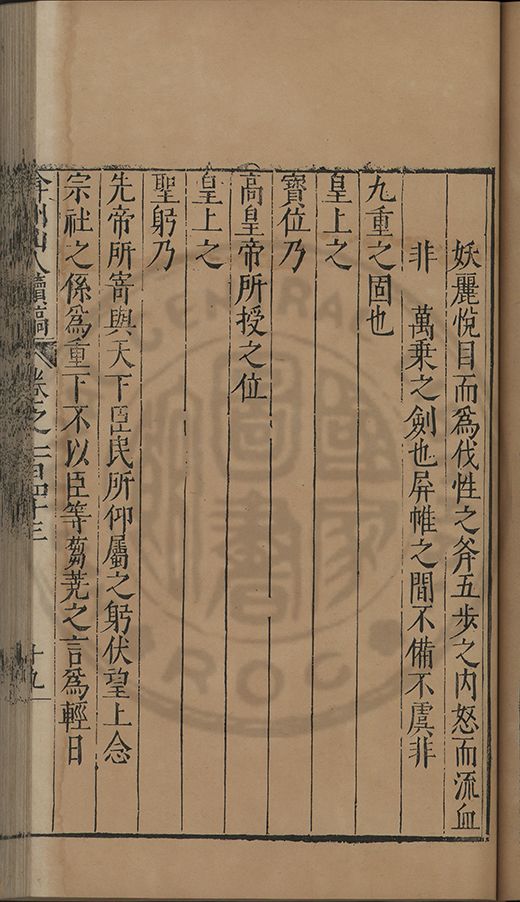 妖麗悅目而為伐性之斧五步之内怒而流血
非　萬乗之劍也屏帷之間不備不虞非
九重之固也
皇上之
寳位乃
高皇帝所授之位
皇上之
聖躬乃
先帝所寄與天下臣民所仰屬之躬伏望上念
宗社之係為重下不以臣等蒭蕘之言為輕日
弇州山人續稿　卷之一百四十三　十九